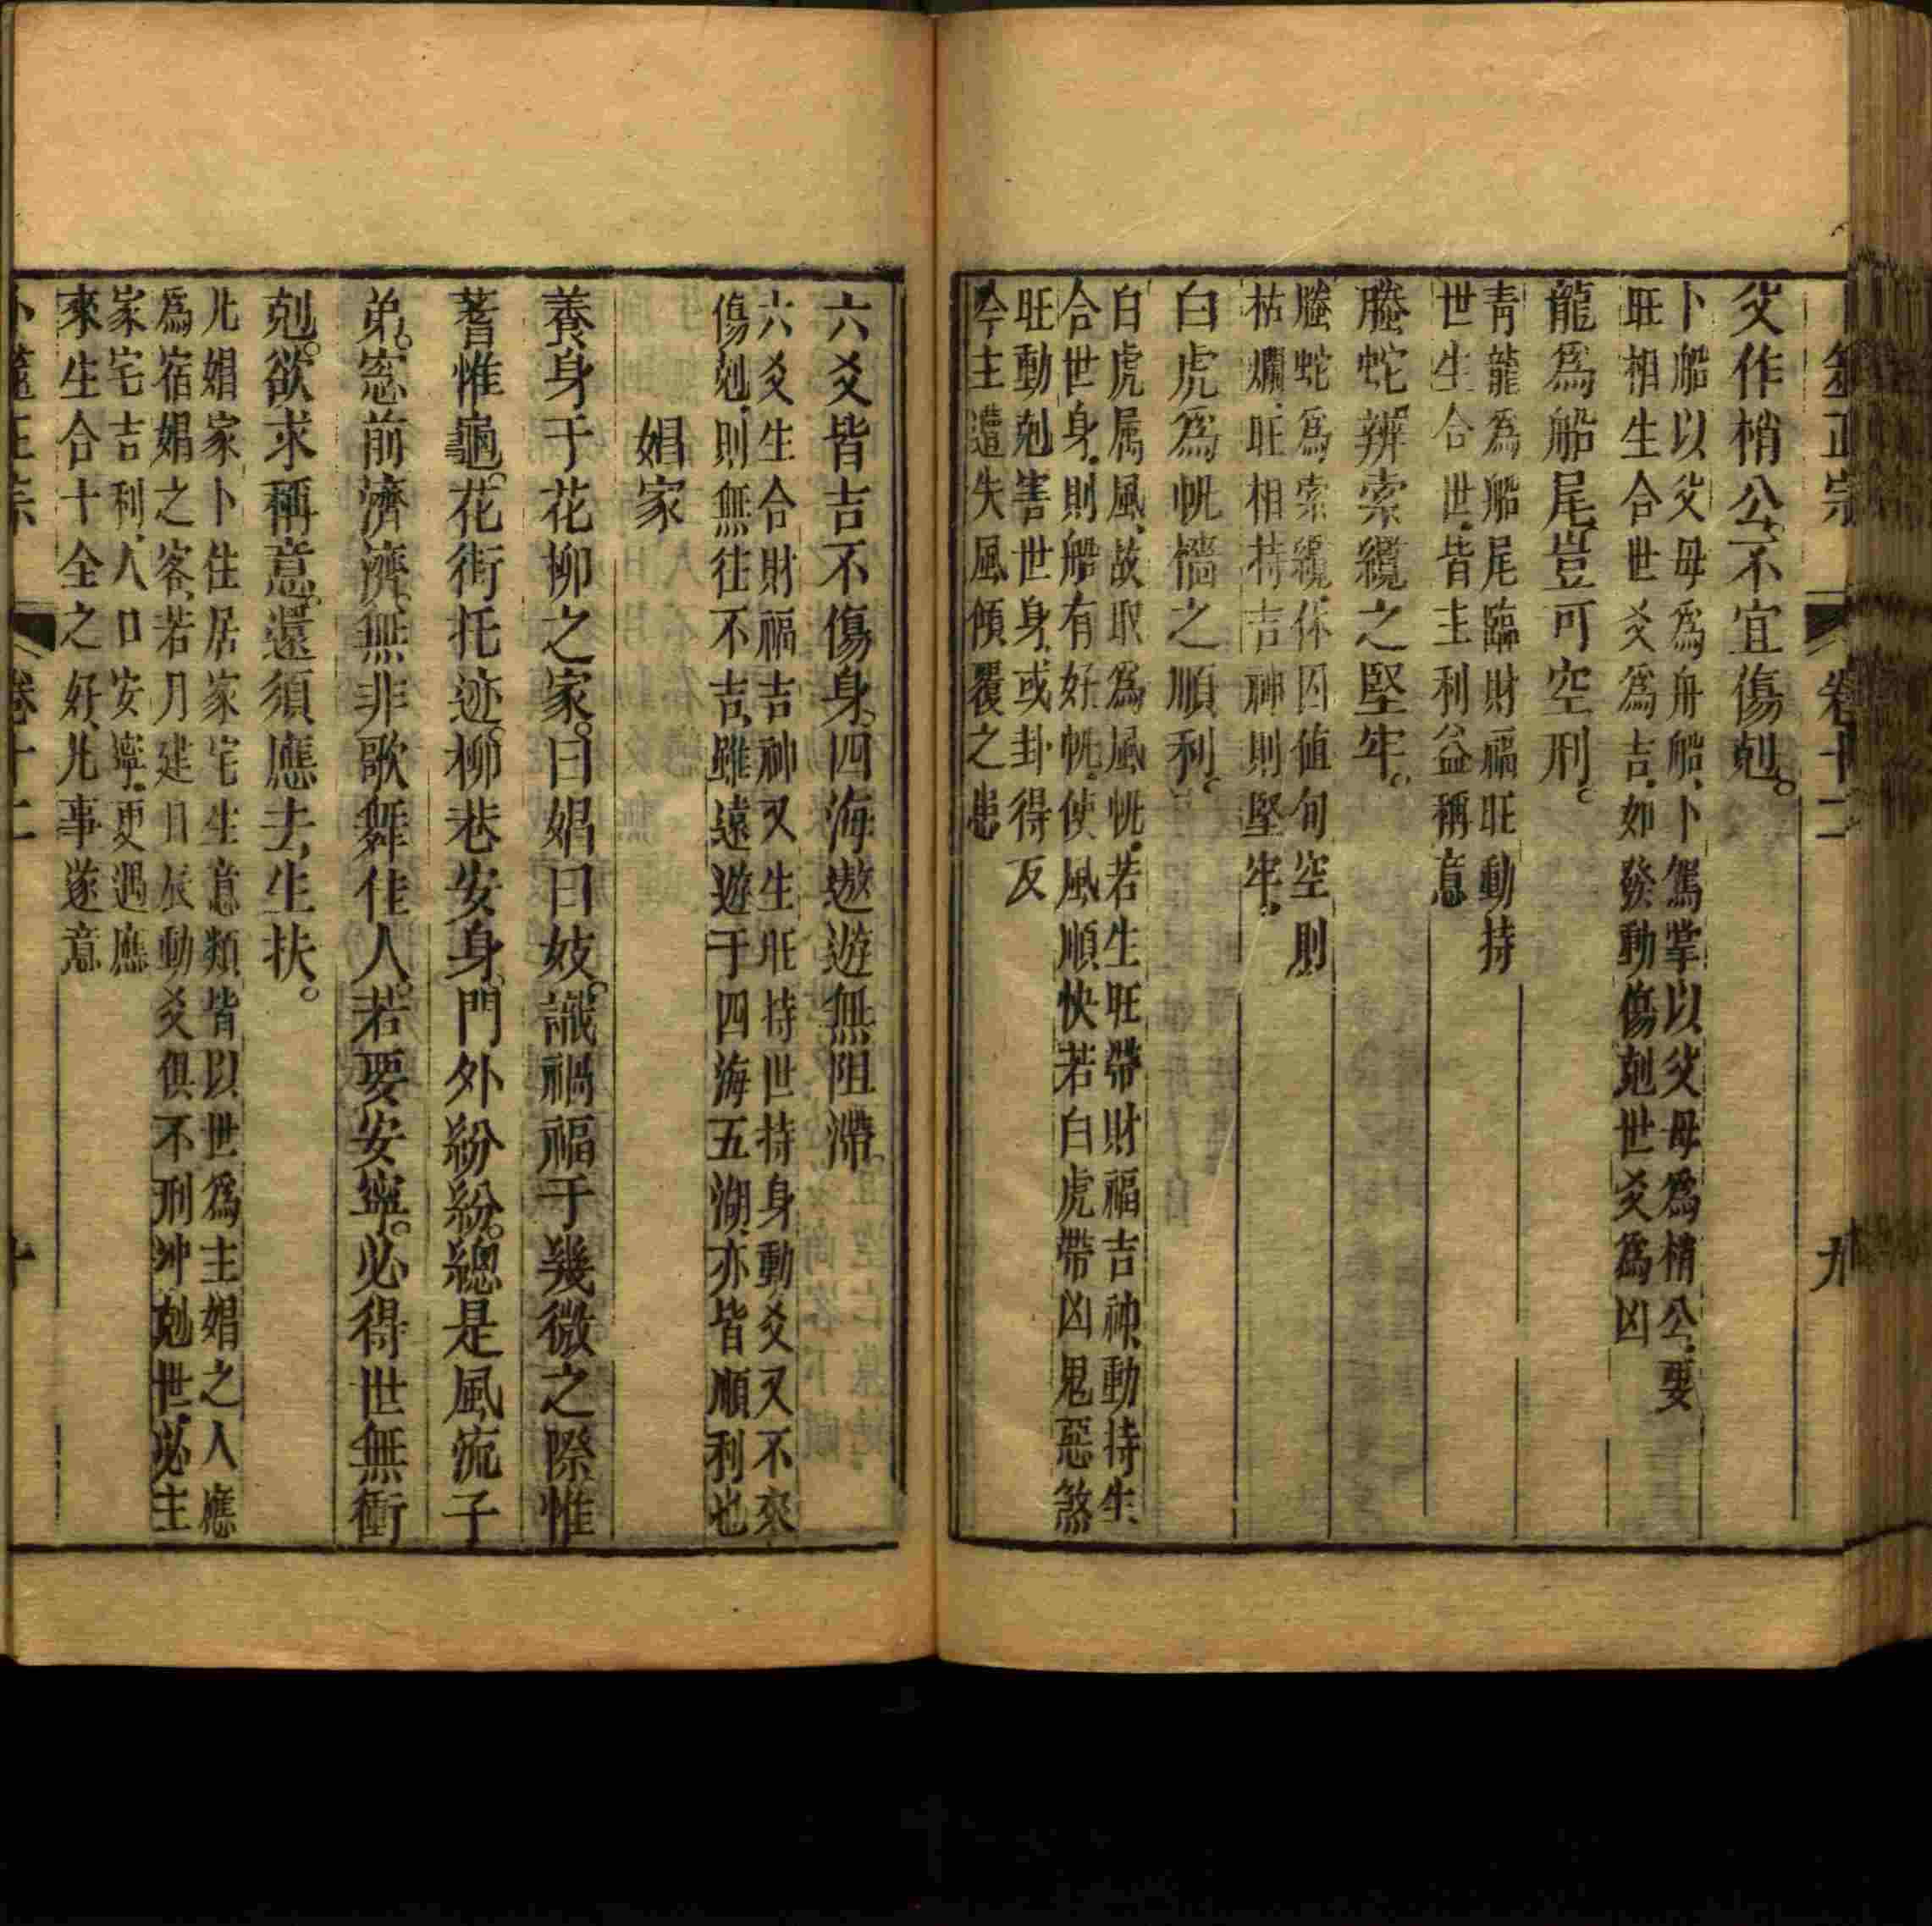 卜筮正宗 卷十二 九
父作梢公不宜傷剋。
卜船以父母爲舟船、卜駕掌以父母爲梢公、要
旺相生合世爻爲吉、如發動傷剋世爻爲凶
龍爲船尾、豈可空刑。
青龍爲船尾臨財福旺動持
世生合世、皆主利益稱意
螣蛇辨索纜之堅牢。
螣蛇爲索纜、休囚值旬空則
枯爛、旺相持吉神則堅牢、
白虎爲帆檣之順利。
白虎属風、故取爲風帆、若生旺帶財福吉神、動持生
合世身、則船有好帆、使風順快若白虎帶凶鬼惡煞
旺動剋害世身、或卦得反
今主遭失風傾覆之患
六爻皆吉不傷身。四海遨遊無阻滯、
六爻生合財福吉神又生旺持世持身動爻又不來
傷剋、則無往不吉、雖遠遊于四海五湖、亦皆順利也
娼家
養身于花柳之家。曰娼曰妓。識禍福于幾微之際惟
蓍惟龜。花街托迹。柳巷安身。門外紛紛。總是風流子
弟。窓前濟濟。無非歌舞佳人。若要安寧。必得世無衝
剋。欲求稱意。還須應去生扶。
凡娼家卜住居家宅生意類、皆以世爲主娼之人應
爲宿娼之客、若月建日辰動爻俱不刑冲剋世、必主
家宅吉利、人口安寧、更遇應
來生合十全之好、凡事遂意
卜筮正宗 卷十二 十